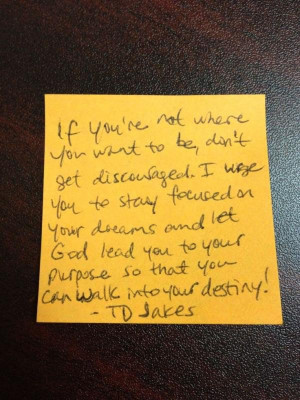 If you're not where
you want to be, don't
get discouraged. I urge
you to stay focused on
your dreams and let
God lead you to your
purpose so that you
can walk into your destiny!
- TD Jakes